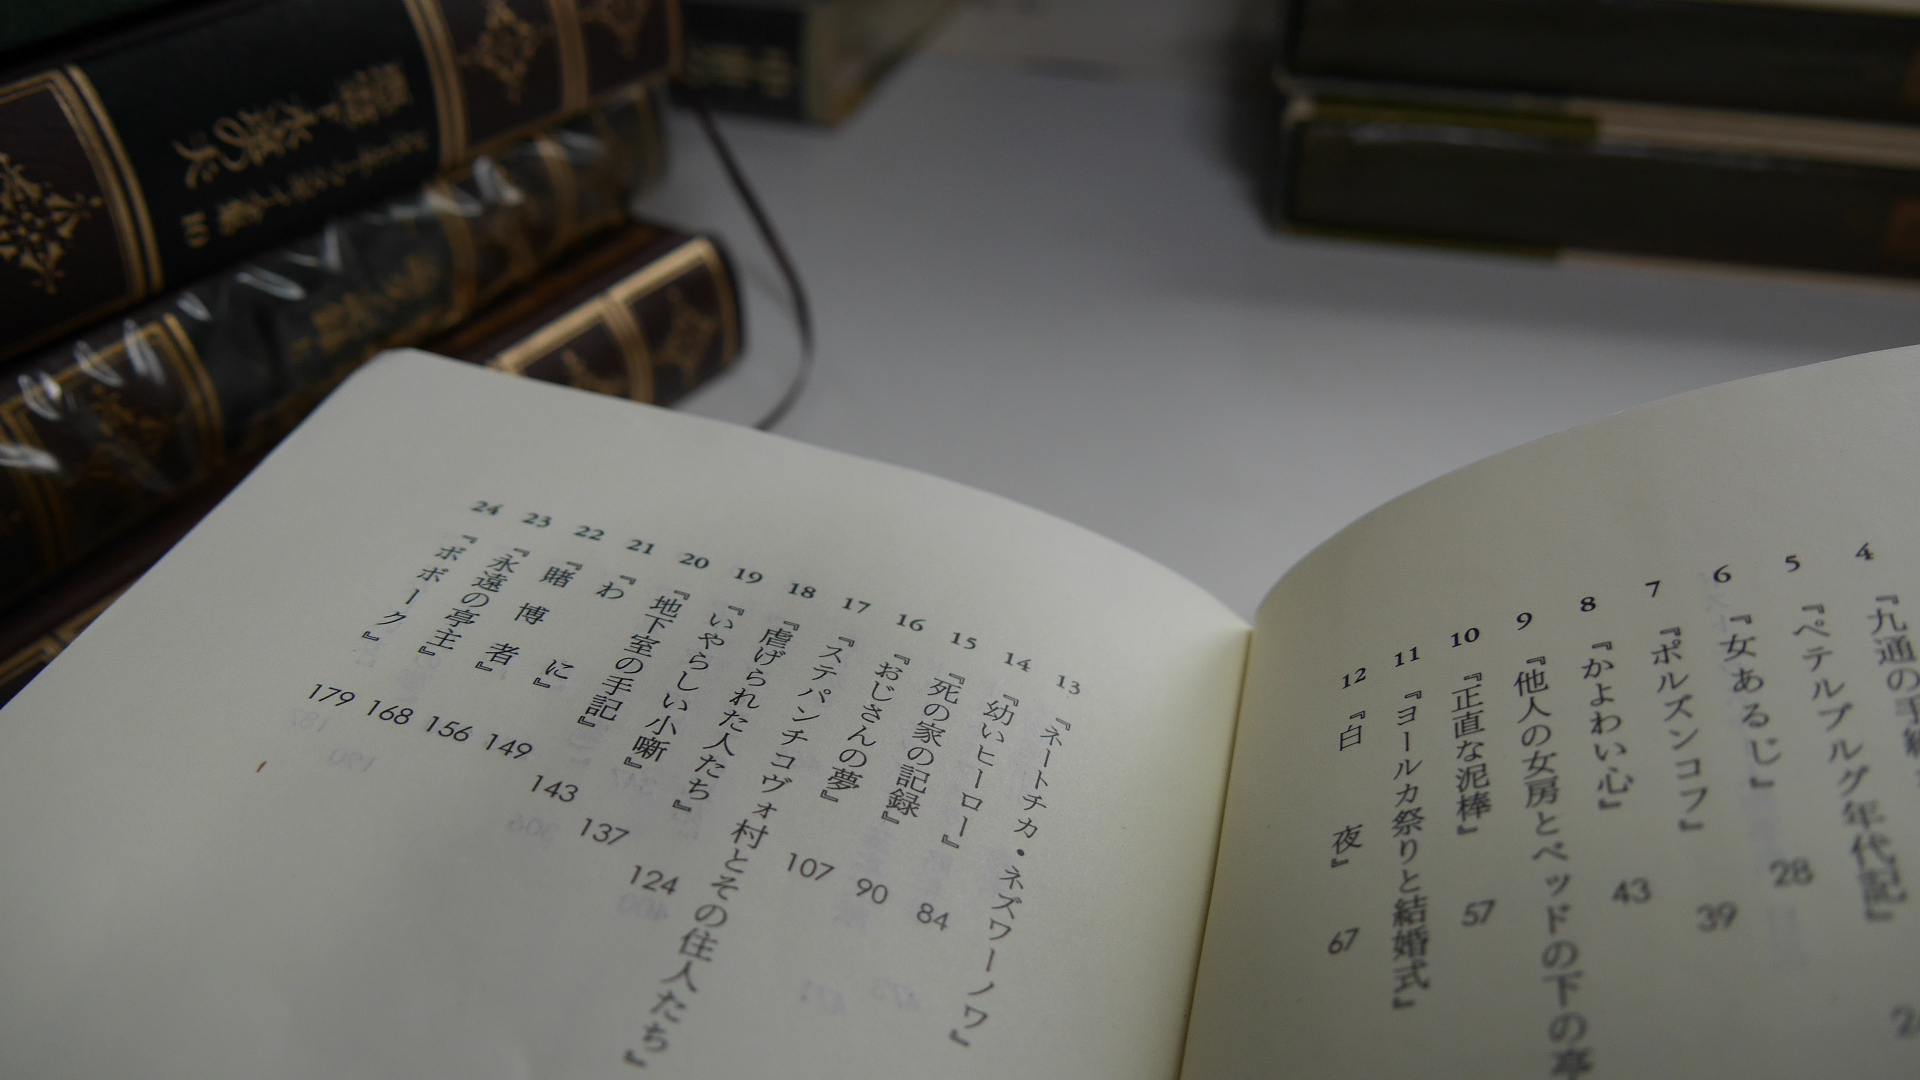 4
『九通の手紙
5
『ペテルブルグ年代記』
6
『女あるじ』
28
7
『ポルズンコフ』
39
8
『かよわい心』
43
9
『他人の女房とベッドの下の亭
10
『正直な泥棒』
57
11
『ヨールカ祭りと結婚式』
12
『白夜』
67
13
『ネートチカ・ネズワーノワ』
14
『幼いヒーロー』
84
15
『死の家の記録』
90
16
『おじさんの夢』
107
17
『ステパンチコヴォ村とその住人たち』
18
『虐げられた人たち』
124
19
『いやらしい小噺』
137
20
『地下室の手記』
143
21
『わに』
149
22
『賭博者』
156
23
『永遠の亭主』
168
24
『ボボーク』
179
悪霊 永遠の夫
10